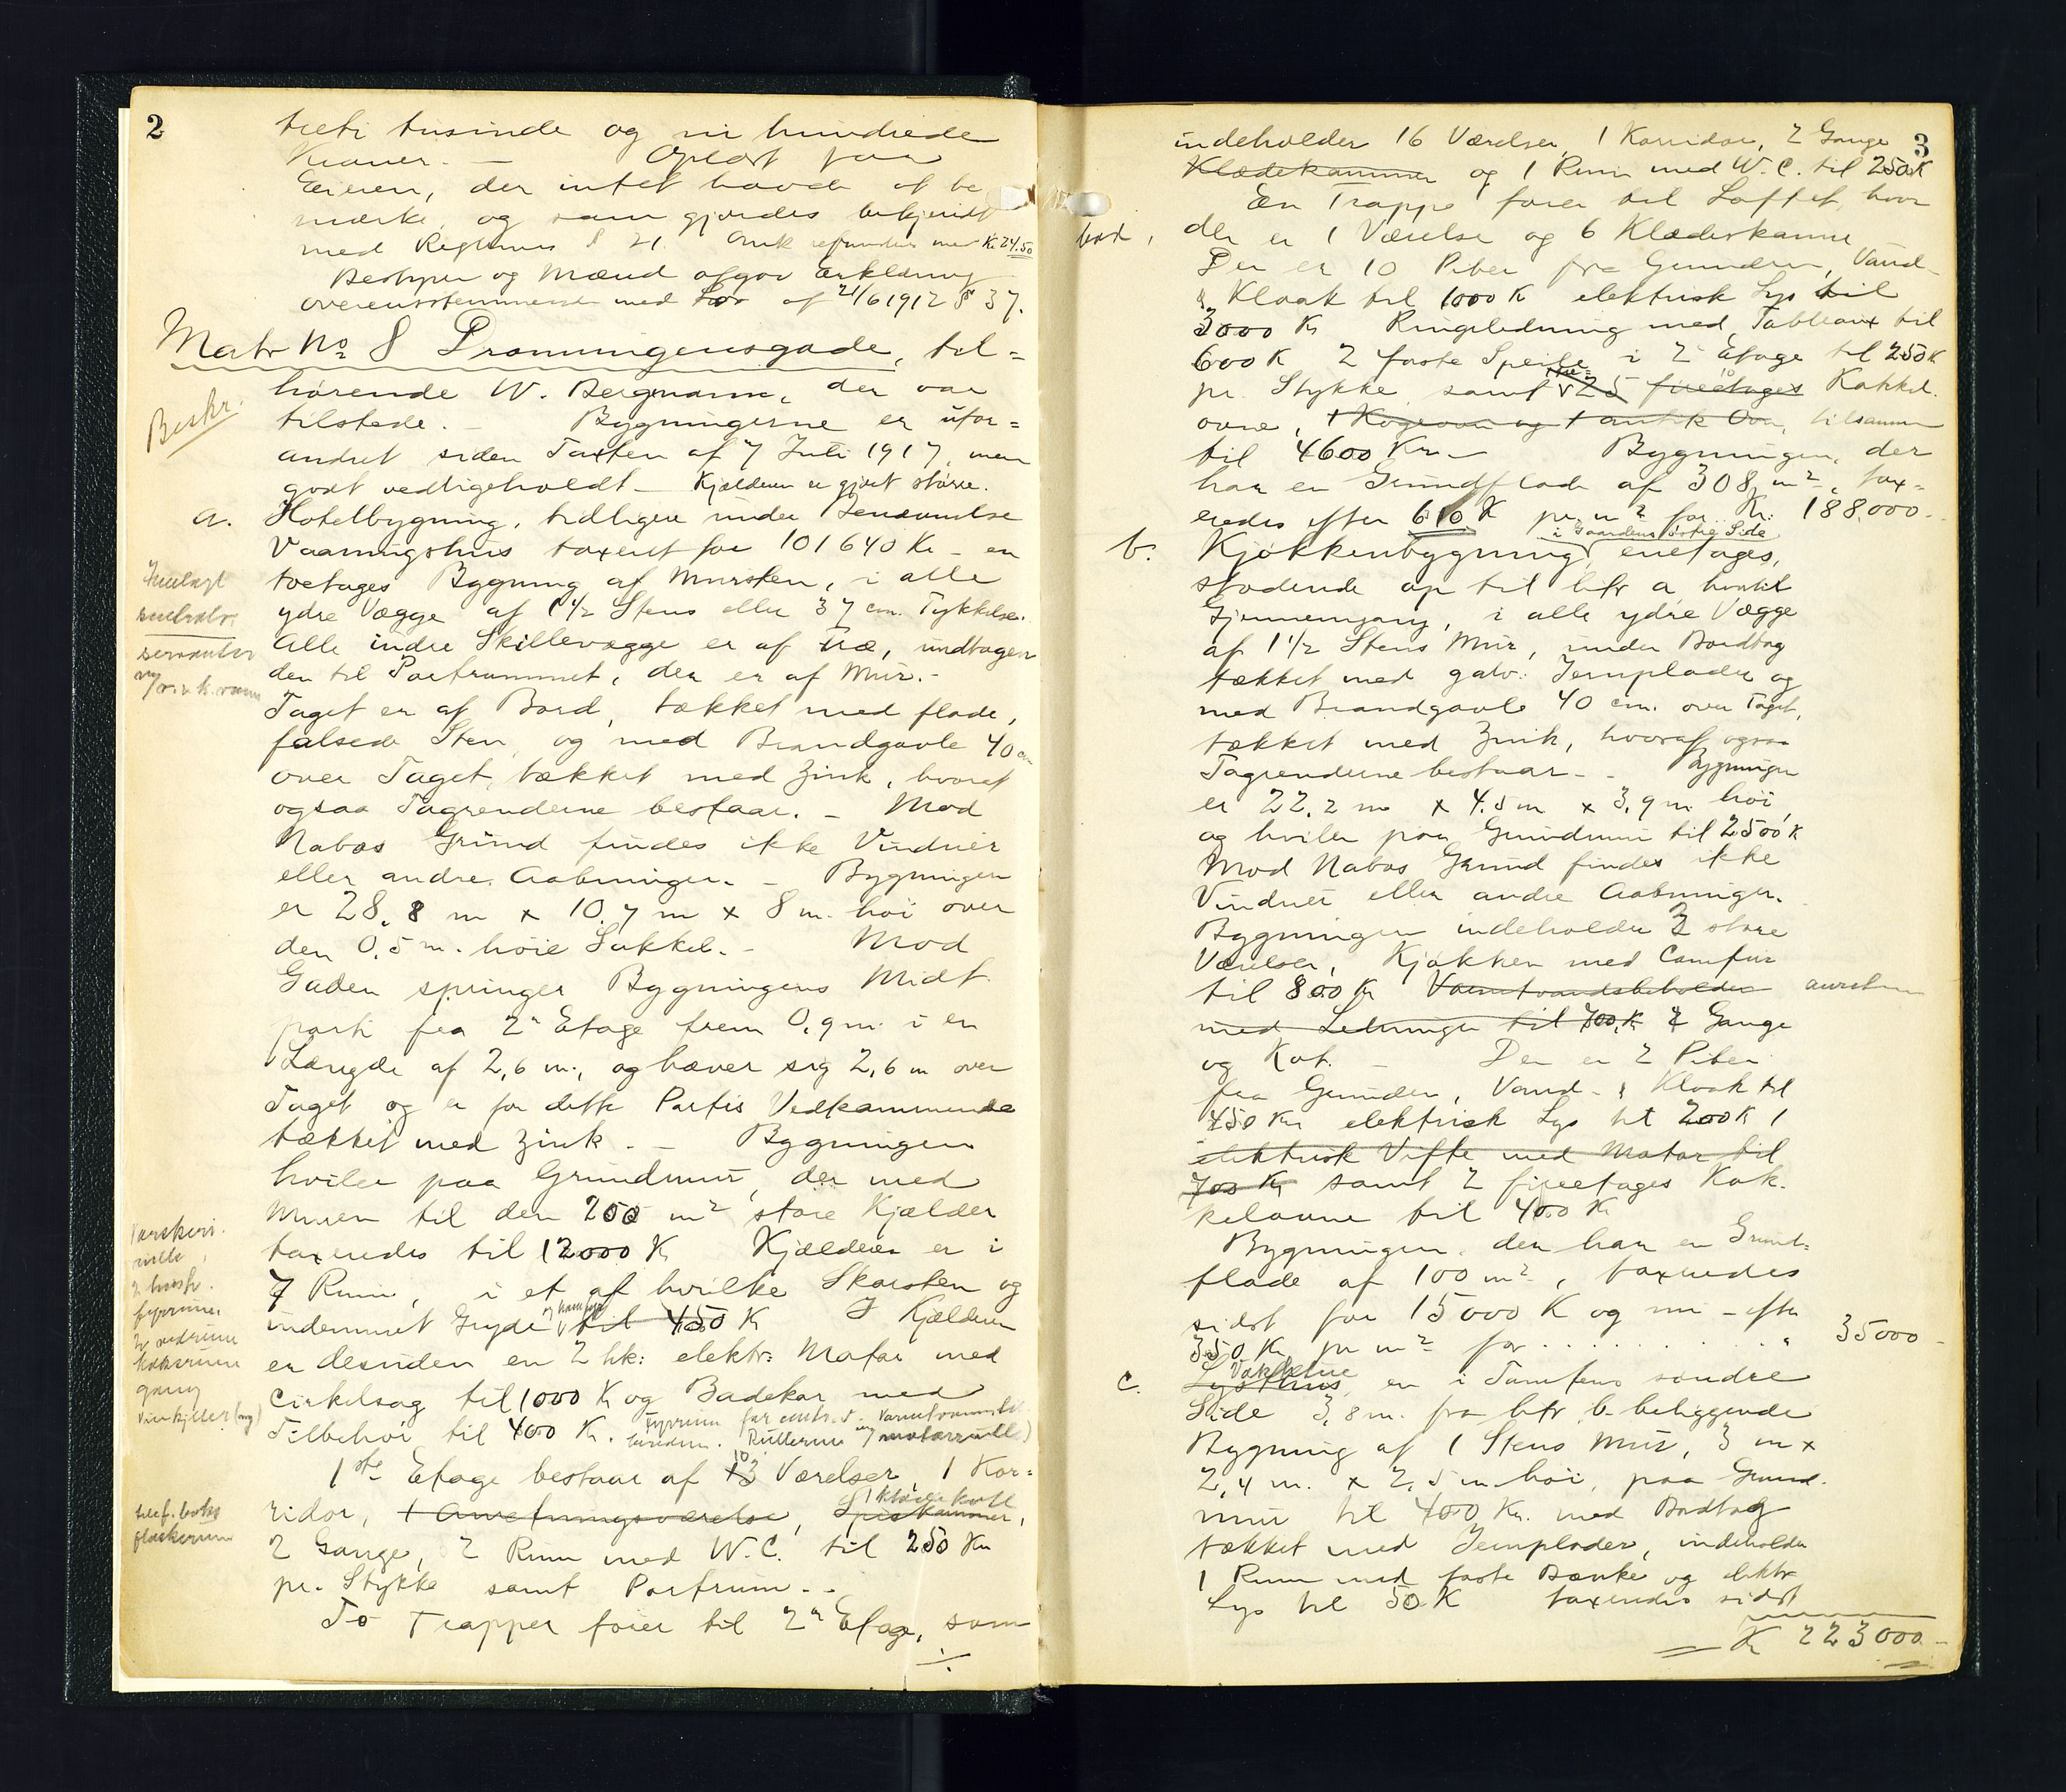 2
treti tusinde og ni hundrede
Kroner. — Oplæst for
Eieren, der intet havde at be
mærke, og som gjordes bekjendt
med Reglernes § 21. refunderes med Kr 24.50
Bestyrer og Mænd afgav Erklæring
overensstemmende med Lov af 21/6 1912 § 37.
Matr No 8 Dronningensgade, til=
hørende W. Bergmann, der var
Beskr.
tilstede. — Bygningerne er ufor=
andret siden Taxten af 7 Juli 1917, men
godt vedligeholdt — Kjælderen er gjort større.
a. Hotelbygning, tidligere under Benævnelse
Vaaningshus taxeret for 101640 Kr — en
toetages Bygning af Mursten, i alle
Indlagt
ydre Vægge af 1 1/2 Stens eller 37 cm. Tykkelse.
centralv.
Alle indre Skillevægge er af Træ, undtagen
servanter
den til Portrummet, der er af Mur. —
m/ v. & k. vann
Taget er af Bord, tækket med flade,
falsede Sten, og med Brandgavle 40 cm
over Taget, tækket med Zink, hvoraf
ogsaa Tagrenderne bestaar. — Mod
Nabos Grund findes ikke Vinduer
eller andre Aabninger. — Bygningen
er 28,8 m x 10,7 m x 8 m. høi over
den 0,5 m. høie Sokkel. — Mod
Gaden springer Bygningens Midt
parti fra 2n Etage frem 0,9 m. i en
Længde af 2,6 m., og hæver sig 2,6 m over
Taget og er for dette Partis Vedkommende
tækket med Zink. — Bygningen
hviler paa Grundmur, der med
Muren til den 200 m² store Kjælder
taxeredes til 12000 K Kjælderen er i
7 Rum, i et af hvilke Skorsten og
indemuret Gryde og komfyr til 450 Kr I Kjælderen
er desuden en 2 hk: elektr: Motor med
Cirkelsag til 1000 Kr og Badekar med
Tilbehør til 400 Kr. fyrrum for centr. v. Rullerum m/ motorrulle)
Vaskeri.
rulle,
fyrrum
2 vedrum
koksrum
gang
vinkjeller (ny)
1ste Etage bestaar af 13 10 Værelser, 1 Kor=
ridor, 1 Anretningsværelse, Spiskammer,
telef. boks
flaskerum
2 Gange, 2 Rum med W.C. til 250 Kr
pr. Stykke samt Portrum. —
To Trapper fører til 2n Etage, som
3
indeholder 16 Værelser, 1 Korridor, 2 Gange
Klædekammer og 1 Rum med W.C. til 250 K
En Trappe fører til Loftet, hvor
bad,
der er 1 Værelse og 6 Klæderkamre
Der er 10 Piber fra Grunden, Vand-
& Kloak til 1000 K elektrisk Lys til
3000 Kr Ringeledning med Tableaux til
600 K 2 faste Speile i 2n Etage til 250 K
pr. Stykke samt 25 fireetages 10 Kakkel.
ovne, 1 Kogeovn og 1 antik Ovn, tilsammen
til 4600 Kr — Bygningen, der
har en Grundflade af 308 m², tax=
eredes efter 610 K pr. m² for Kr: 188.000 -
b. Kjøkkenbygning, i Gaardens østre Side enetages,
stødende op til litr a, hvortil
Gjennemgang, i alle ydre Vægge
af 1 1/2 Stens Mur, under Bordtag
tækket med galv. Jernplader og
med Brandgavle 40 cm. over Taget,
tækket med Zink, hvoraf ogsaa
Tagrenderne bestaar. — Bygningen
er 22,2 m x 4.5 m x 3,9 m. høi,
og hviler paa Grundmur til 2500 K
Mod Nabos Grund findes ikke
Vinduer eller andre Aabninger.
Bygningen indeholder 3 store
Værelser, Kjøkken med Comfur
til 800 Kr Varmtvandsbeholder
med Ledninger til 700 K 2 Gange
og Kot. — Der er 2 Piber
fra Grunden, Vand- & Kloak til
450 Kr elektrisk Lys til 200 K 1
elektrisk Vifte med Motor til
700 Kr samt 2 fireetages Kak.
kelovne til 400 Kr
Bygningen, der har en Grund=
flade af 100 m², taxeredes
sidst for 15000 K og nu — efter
350 Kr pr m² for . . . . . . . . " 35000 -
c. Lysthus Vaktstue, en i Tomtens søndre
Side 3,8 m. fra litr b. beliggende
Bygning af 1 Stens Mur, 3 m x
2,4 m. x 2,5 m høi, paa Grund-
mur til 400 Kr. med Bordtag
tækket med Jernplader, indeholder
1 Rum med faste Bænke og elektr
Lys til 50 K taxeredes sidst
Kr 223000 -